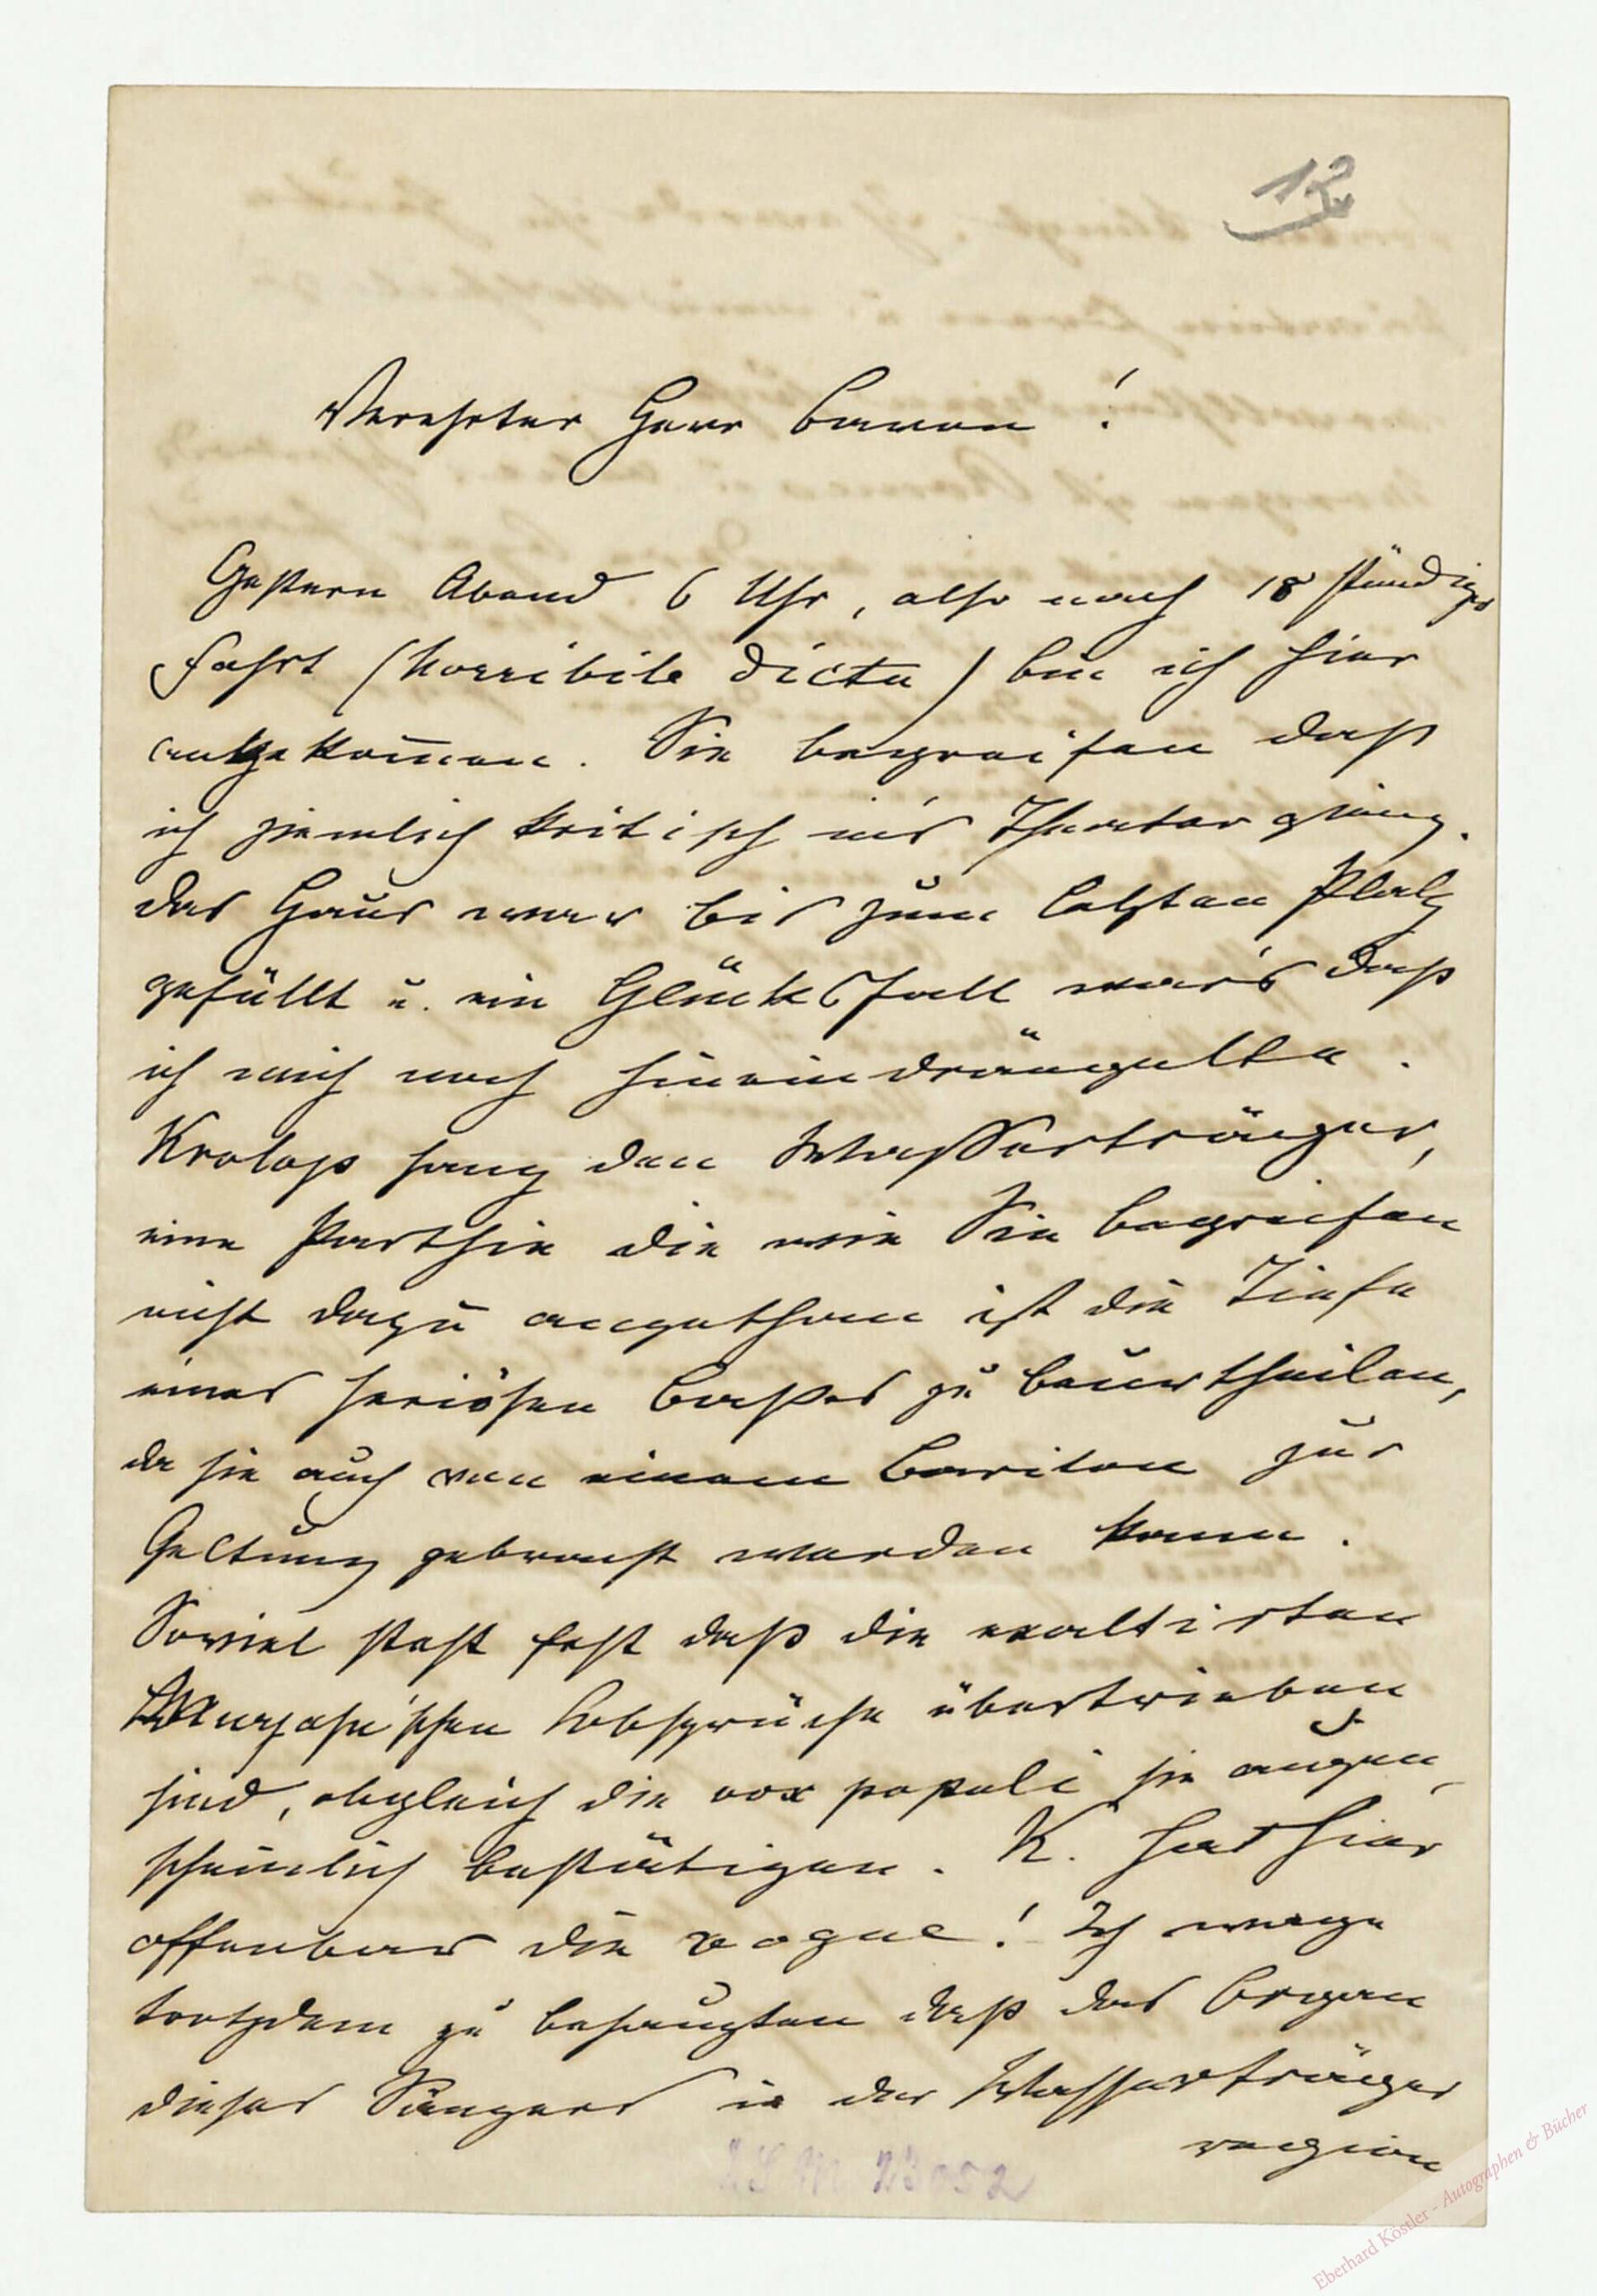 12
Verehrter Herr Baron!
Gestern Abend 6 Uhr, also nach 18 stündiger
Fahrt (horribile dictu) bin ich hier
angekom̄en. Sie begreifen daß
ich ziemlich kritisch in's Theater ging.
Das Haus war bis zum letzten Platz
gefüllt u. ein Glücksfall war's daß
ich mich noch hineindrängelte.
Krolop sang den Wasserträger,
eine Parthie die wie Sie begreifen
nicht dazu angethan ist die Tiefe
eines seriösen Basses zu beurtheilen,
da sie auch von einem Bariton zur
Geltung gebracht werden kann.
Soviel steht fest daß die exaltirten
Lobsprüche übertrieben
sind, obgleich die vox populi sie augen-
scheinlich bestätigen. K. hat hier
offenbar die vogue! Ich wage
trotzdem zu behaupten daß das Organ
dieses Sängers in der Wasserträger
region
Eberhard Köstler - Autographen & Bücher